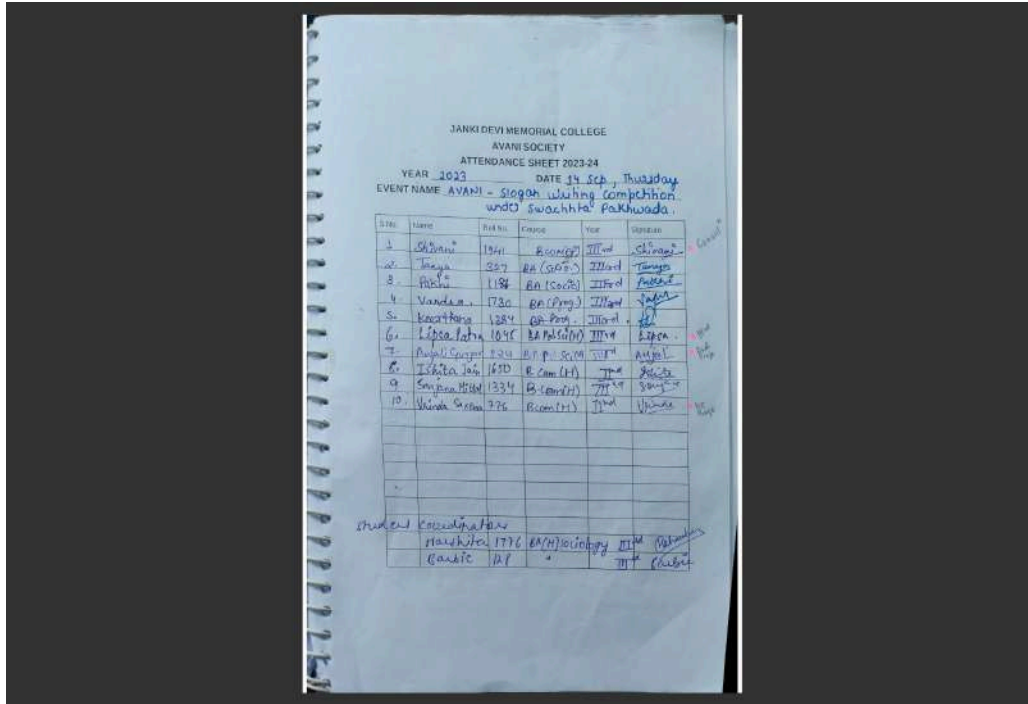 JANKI DEVI MEMORIAL COLLEGE
AVANI SOCIETY
ATTENDANCE SHEET 2023-24
YEAR 2023 DATE 14 Sep, Thursday
EVENT NAME AVANI - Slogan Writing Competition
under Swachhta Pakhwada.
S.No. Name Roll No. Course Year Signature
1 Shivani 1941 Bcom(P) IIIrd Shivani
2. Tanya 357 BA (Socio.) IIIrd Tanya
3. Pakhi BA (Socio) IIIrd Pakhi
4. 1730 BA (Prog) IIIrd
5. Keerthana 1384 BA Prog. IIIrd
6. Lipsa Patra 1045 BA Pol Sci(H) IIIrd Lipsa.
7. Anjali IIIrd Anjali
8. Ishita Jain 1650 B Com (H) IInd
9 Sanjana Mittal 1334 B Com(H)
10. Vrinda 776 Bcom(H) IInd Vrinda
Student Coordinators
Harshita 1776 BA(H) Sociology IIIrd
Barbie " IIIrd Barbie